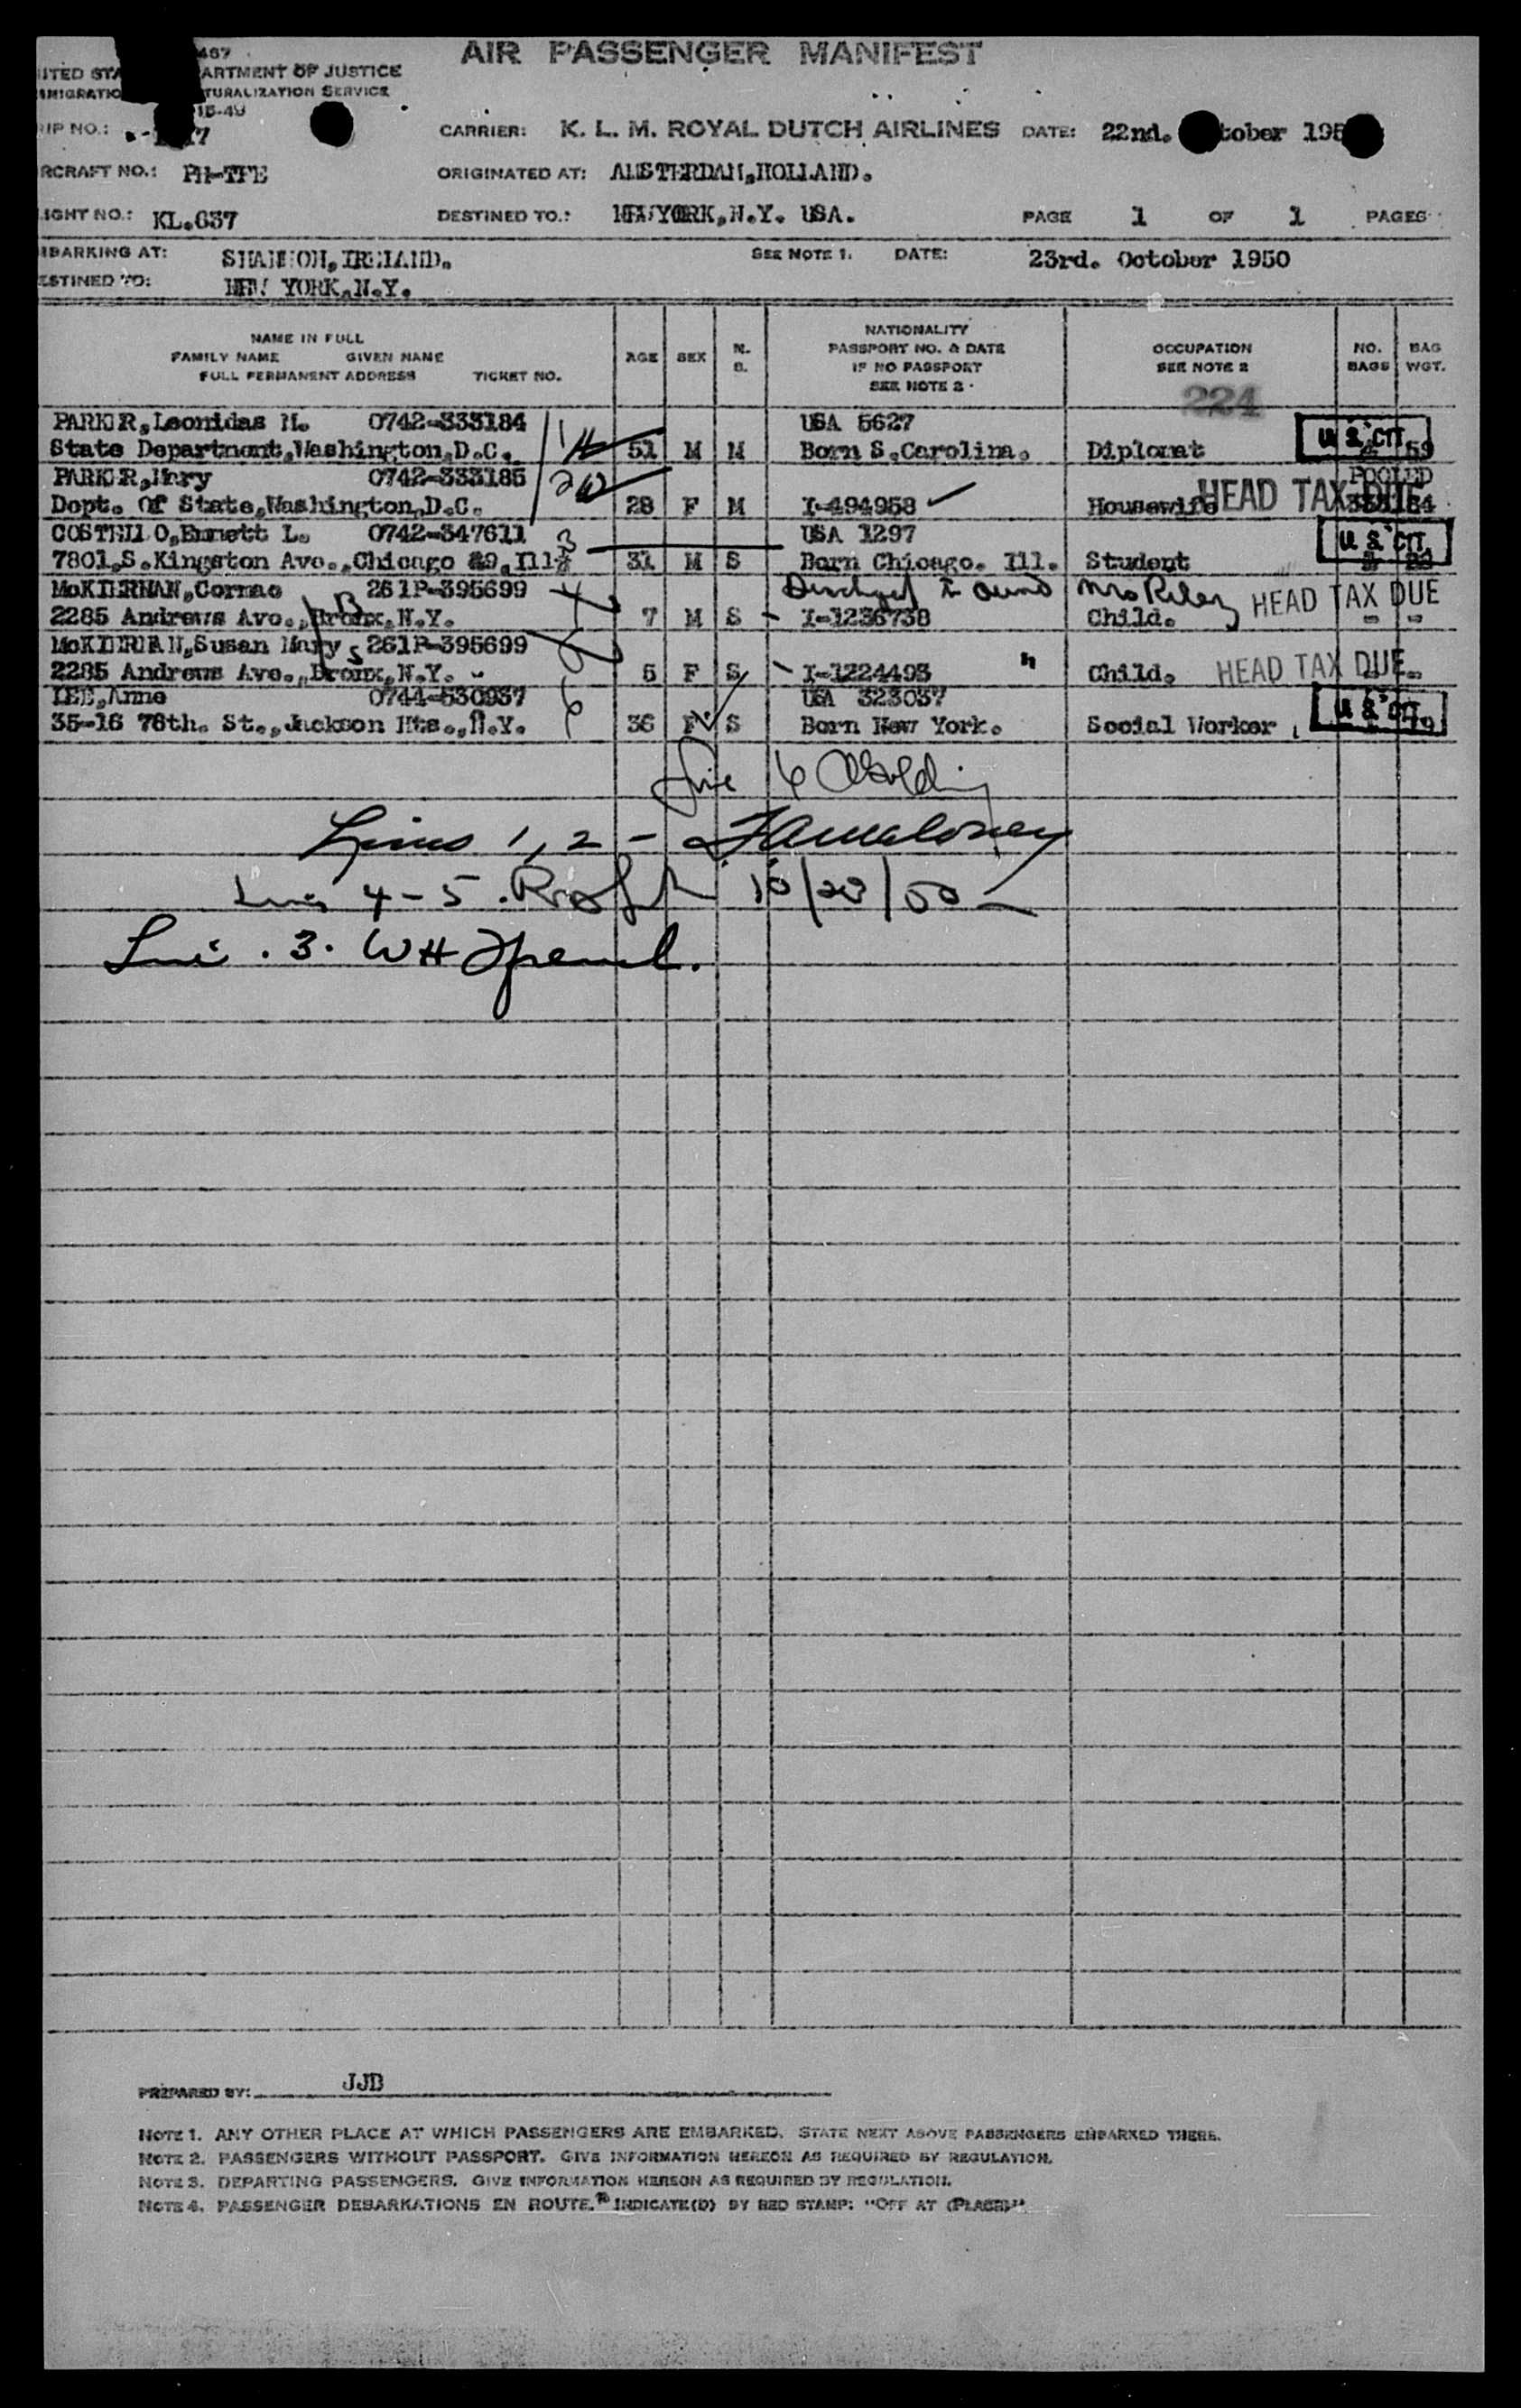 AIR PASSENGER MANIFEST
467
ARTMENT OF JUSTICE
TURALIZATION SERVICE
15-49
IP NO.: 7 CARRIER: K. L. M. ROYAL DUTCH AIRLINES DATE: 22nd. tober 195
RCRAFT NO.: PH-TFE ORIGINATED AT: AMSTERDAM,HOLLAND.
IGHT NO.: KL.637 DESTINED TO.: NEW YORK,N.Y. USA. PAGE 1 OF 1 PAGES
MBARKING AT: SHANNON,IRELAND. SEE NOTE 1. DATE: 23rd. October 1950
ESTINED TO: NEW YORK,N.Y.
NAME IN FULL
FAMILY NAME GIVEN NAME
FULL PERMANENT ADDRESS TICKET NO.
AGE SEX
M.
S.
NATIONALITY
PASSPORT NO. & DATE
IF NO PASSPORT
SEE NOTE 2
OCCUPATION
SEE NOTE 2
NO.
BAGS
BAG
WGT.
224
PARKER,Leonidas M. 0742-333184 USA 5627
State Department,Washington,D.C. 1 51 M M Born S.Carolina. Diplomat U.S. CIT. 59
PARKER,Mary 0742-333185 2 POOLED
Dept. Of State,Washington,D.C. 28 F M I-494958 Housewife HEAD TAX DUE 333184
COSTELLO,Emmett L. 0742-347611 3 USA 1297
7801,S.Kingston Ave.,Chicago 49,Ill 31 M S Born Chicago. Ill. Student U.S. CIT.
McKIERNAN,Cormac 261P-395699 4 Discharged to aunt Mrs Riley
2285 Andrews Ave.,Bronx,N.Y. 7 M S I-1236738 Child. HEAD TAX DUE - -
McKIERNAN,Susan Mary 261P-395699 5
2285 Andrews Ave.,Bronx,N.Y. 5 F S I-1224493 " Child. HEAD TAX DUE
LEE,Anne 0744-530937 6 USA 323037
35-16 78th. St.,Jackson Hts.,N.Y. 36 F S Born New York. Social Worker U.S. CIT.
Line 6
Lines 1, 2 - FAMaloney
Lines 4-5. 10/23/50
Line . 3. WH
PREPARED BY: JJB
NOTE 1. ANY OTHER PLACE AT WHICH PASSENGERS ARE EMBARKED. STATE NEXT ABOVE PASSENGERS EMBARKED THERE.
NOTE 2. PASSENGERS WITHOUT PASSPORT. GIVE INFORMATION HEREON AS REQUIRED BY REGULATION.
NOTE 3. DEPARTING PASSENGERS. GIVE INFORMATION HEREON AS REQUIRED BY REGULATION.
NOTE 4. PASSENGER DEBARKATIONS EN ROUTE. INDICATE(D) BY RED STAMP: "OFF AT (PLACE)"